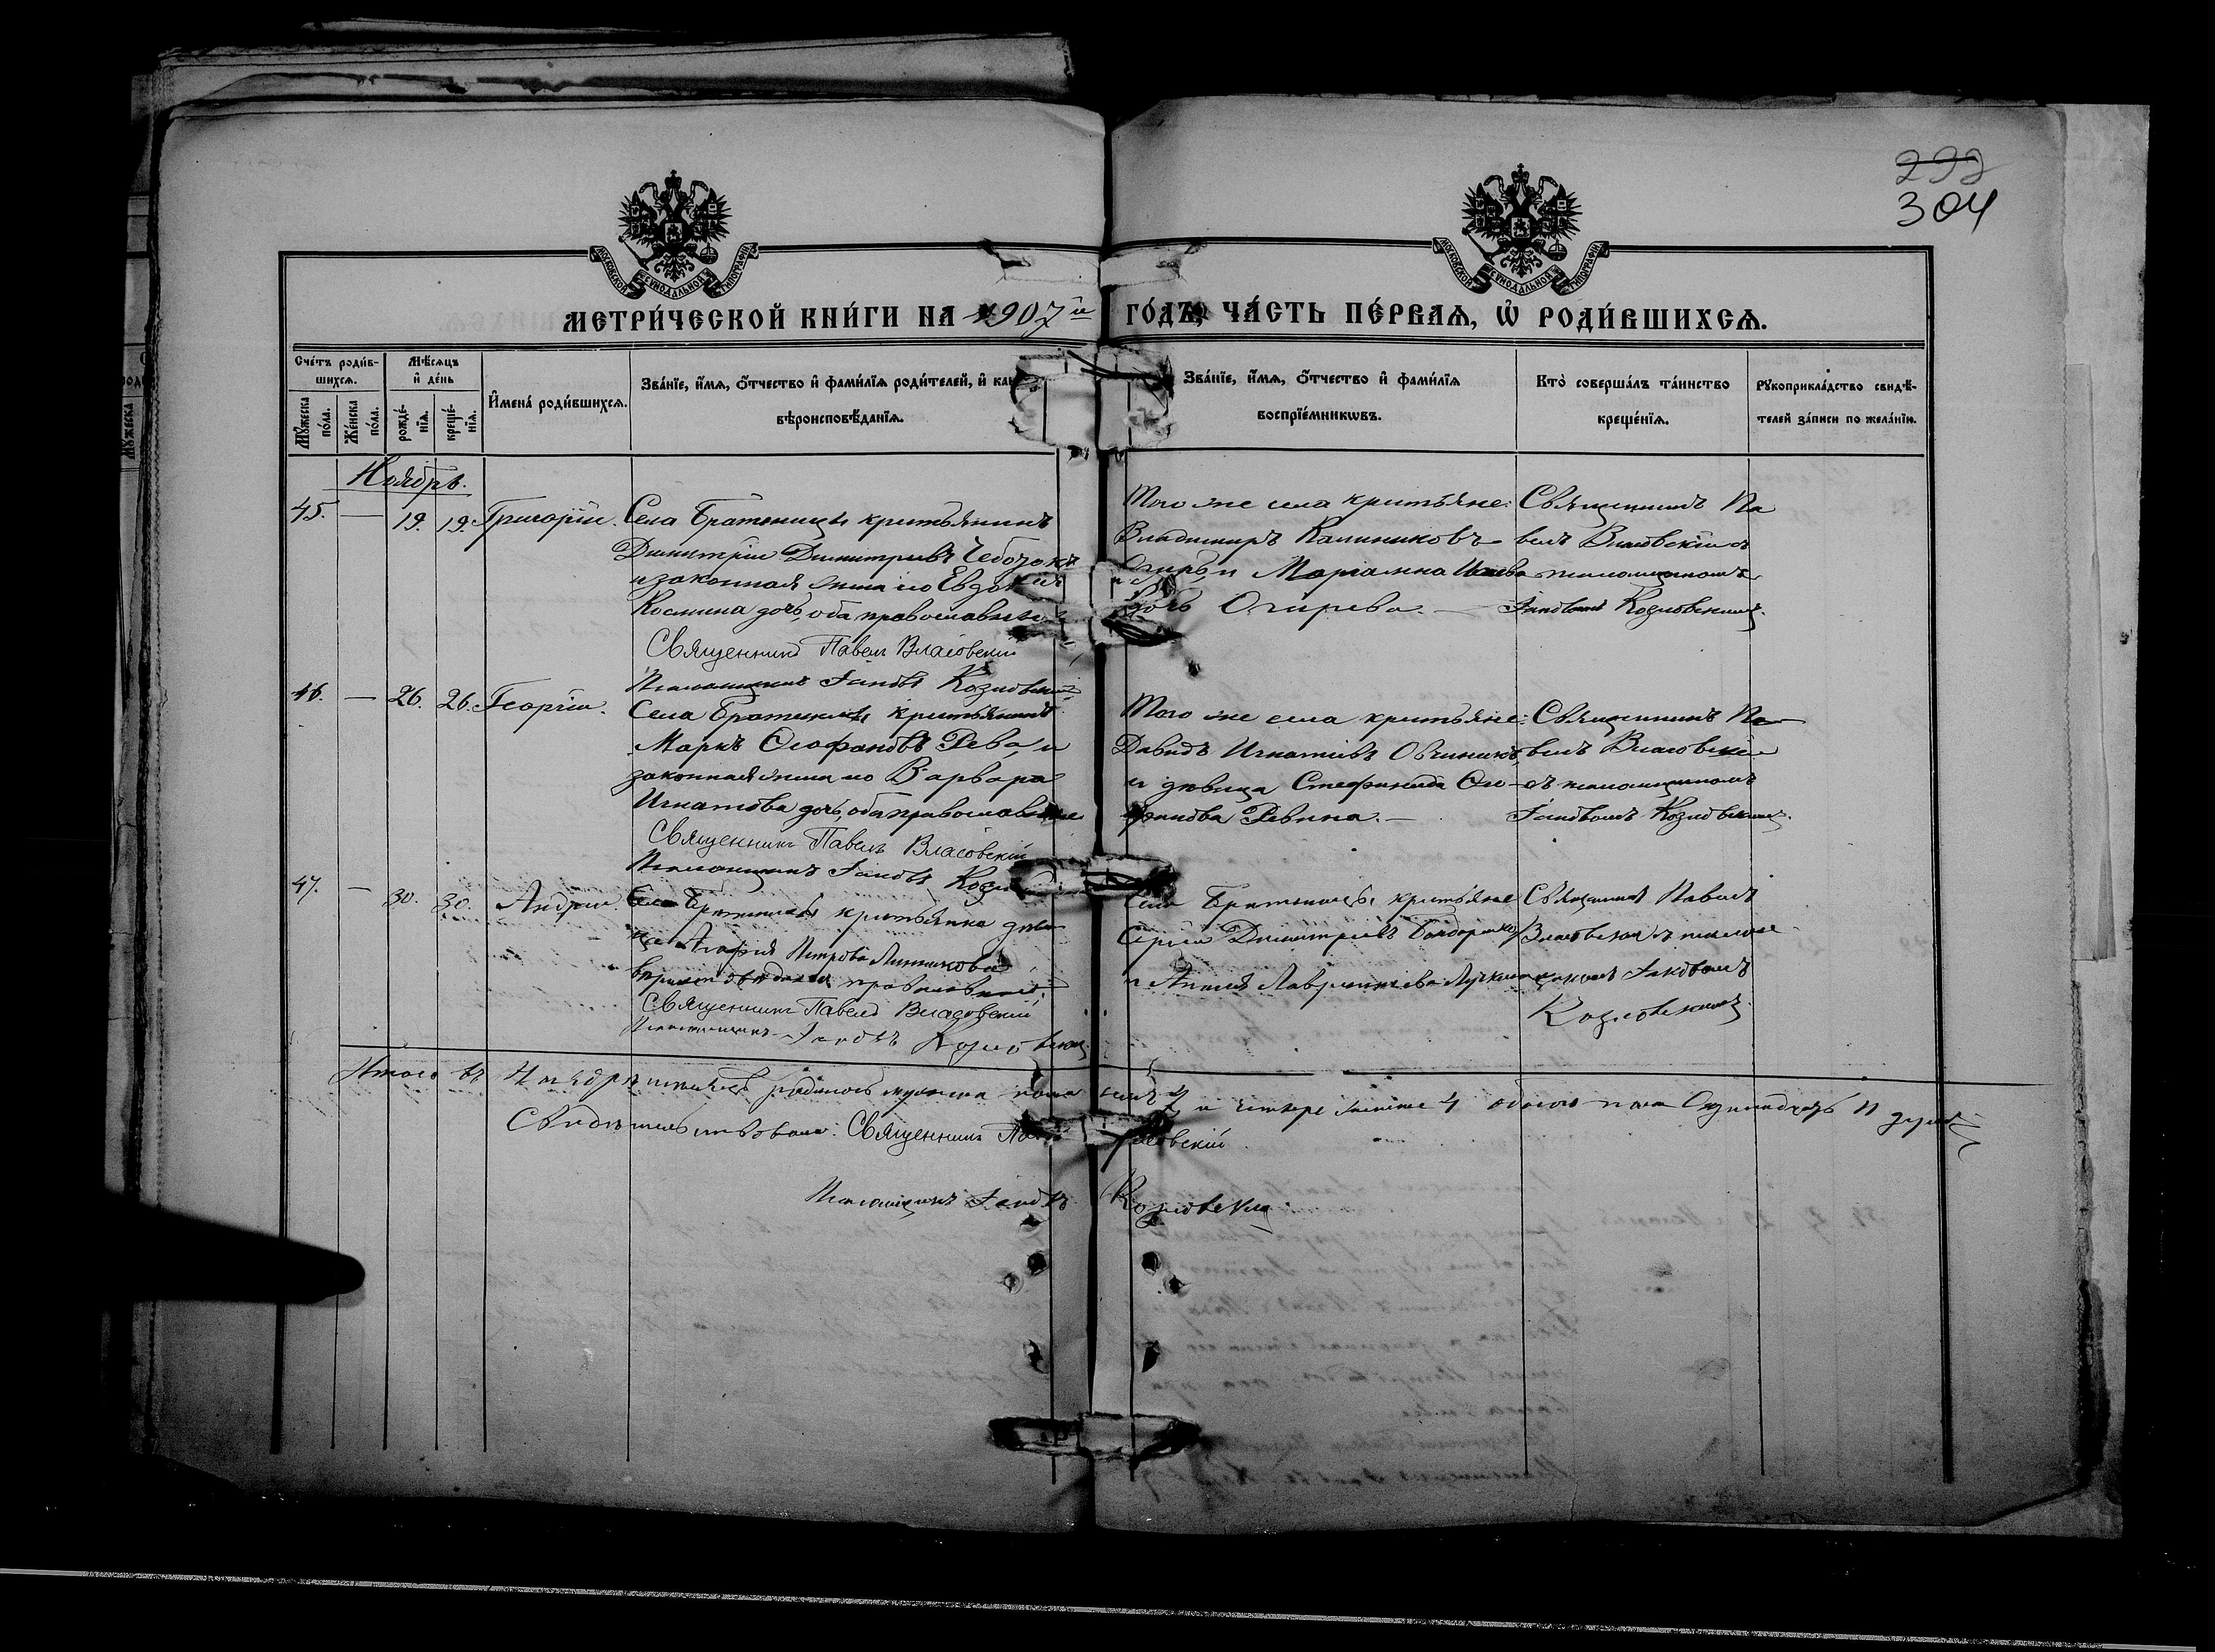 292
304
МОСКОВСКОЙ СУНОДАЛЬНОЙ ТИПОГРАФІИ
МОСКОВСКОЙ СУНОДАЛЬНОЙ ТИПОГРАФІИ
МЕТРИ́ЧЕСКОЙ КНИ́ГИ НА 1907й ГО́ДЪ, ЧА́СТЬ ПЕ́РВАѦ, Ѡ҆ РОДИ́ВШИХСѦ.
Сче́тъ роди́в-
шихсѧ.
Мꙋ́жеска по́ла.
Же́нска по́ла.
Мѣ́сѧцъ
и҆ де́нь
рожде́-
нїѧ.
креще́-
нїѧ.
И҆мена̀ роди́вшихсѧ.
Зва́нїе, и҆́мѧ, ѻ҆́тчество и҆ фами́лїѧ роди́телей, и҆ как
вѣроисповѣ́данїѧ.
Зва́нїе, и҆́мѧ, ѻ҆́тчество и҆ фами́лїѧ
воспрїе́мникѡвъ.
Кто̀ соверша́лъ та́инство
креще́нїѧ.
Рꙋкоприкла́дство свидѣ́-
телей за́писи по жела́нїю.
Ноябрь.
45. — 19. 19. Григорій.
Села Братеницы крестьянинъ
Димитрій Димитріевъ
и законная жена его Евдокія
Космина дочь, оба православные
Священникъ Павелъ Власовскій
Псаломщикъ Іаковъ Козловскій
Того же села крестьяне:
Владимиръ Калиниковъ
и Маріамна
дочь Огирева. —
Священникъ Па
велъ Власовскій съ
псаломщикомъ
Іаковомъ Козловскимъ.
46. — 26. 26. Георгій.
Села Братеницы крестьянинъ
Маркъ Ѳеофановъ Рева и
законная жена его Варвара
Игнатова дочь, оба православные
Священникъ Павелъ Власовскій
Псаломщикъ Іаковъ
Того же села крестьяне:
Давидъ Игнатіевъ
и дѣвица Стефанида Ѳео-
фанова Ревина. —
Священникъ Па
велъ Власовскій
съ псаломщикомъ
Іаковомъ Козловскимъ.
47. — 30. 30. Андрей.
Села Братеницы крестьянка дѣви
ца Агафія Петрова
вѣроисповѣданія православнаго.
Священникъ Павелъ Власовскій
Псаломщикъ Іаковъ Козловскій
Села Братеницы крестьяне
Сергій Димитріевъ
и Лаврентіева
Священникъ Павелъ
Власовскій съ псалом
щикомъ Іаковомъ
Козловскимъ.
Итого въ Ноябрѣ мѣсяцѣ родилось мужеска пола семь 7 и четыре женска 4 обоего пола Одинадцать 11 душъ
Свидѣтельствовали: Священникъ Павелъ Власовскій
Псаломщикъ Іаковъ Козловскій